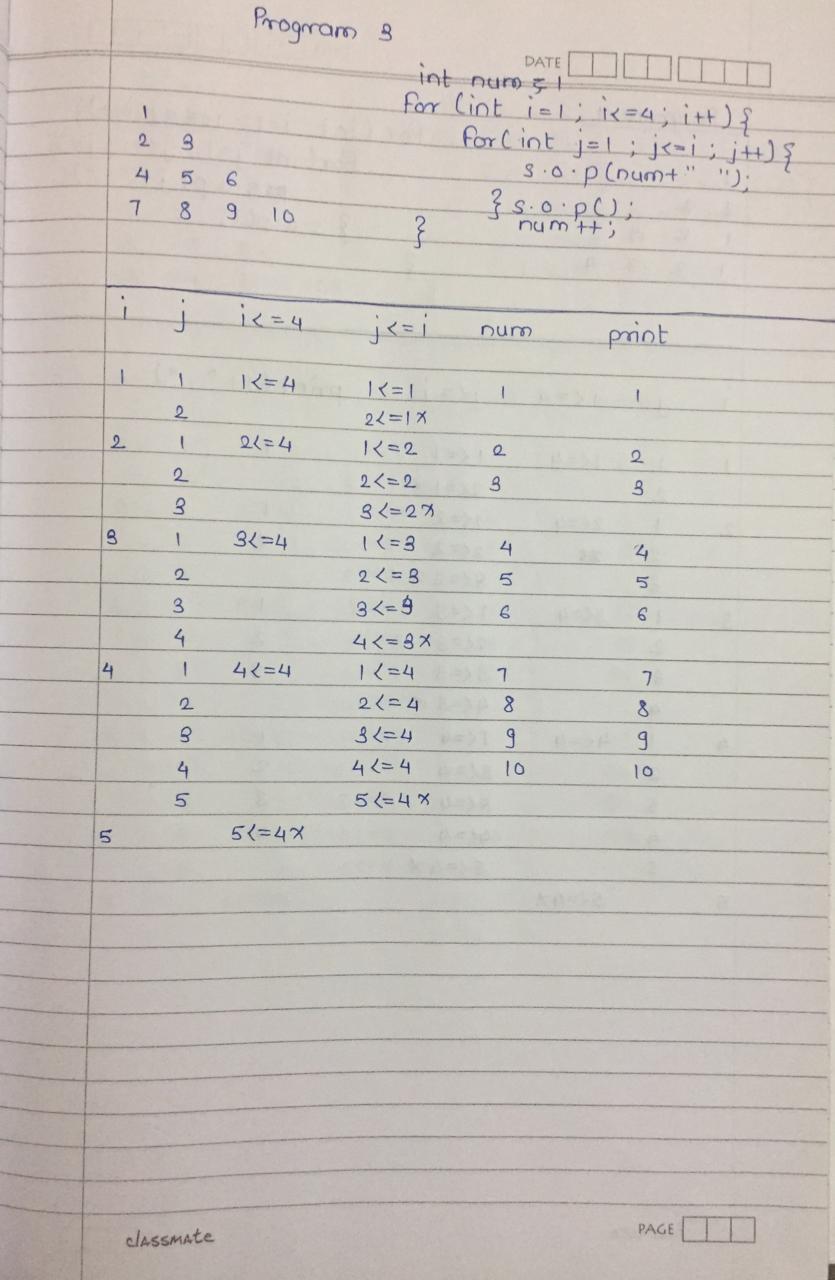 Program 3
DATE
int num = 1
for (int i=1; i<=4; i++) {
1
for (int j=1; j<=i; j++) {
2 3
s.o.p(num+" ");
4 5 6
} s.o.p();
7 8 9 10
num++;
}
i j i<=4 j<=i num print
1 1 1<=4 1<=1 1 1
2 2<=1x
2 1 2<=4 1<=2 2 2
2 2<=2 3 3
3 3<=2x
3 1 3<=4 1<=3 4 4
2 2<=3 5 5
3 3<=3 6 6
4 4<=3x
4 1 4<=4 1<=4 7 7
2 2<=4 8 8
3 3<=4 9 9
4 4<=4 10 10
5 5<=4x
5 5<=4x
classmate
PAGE